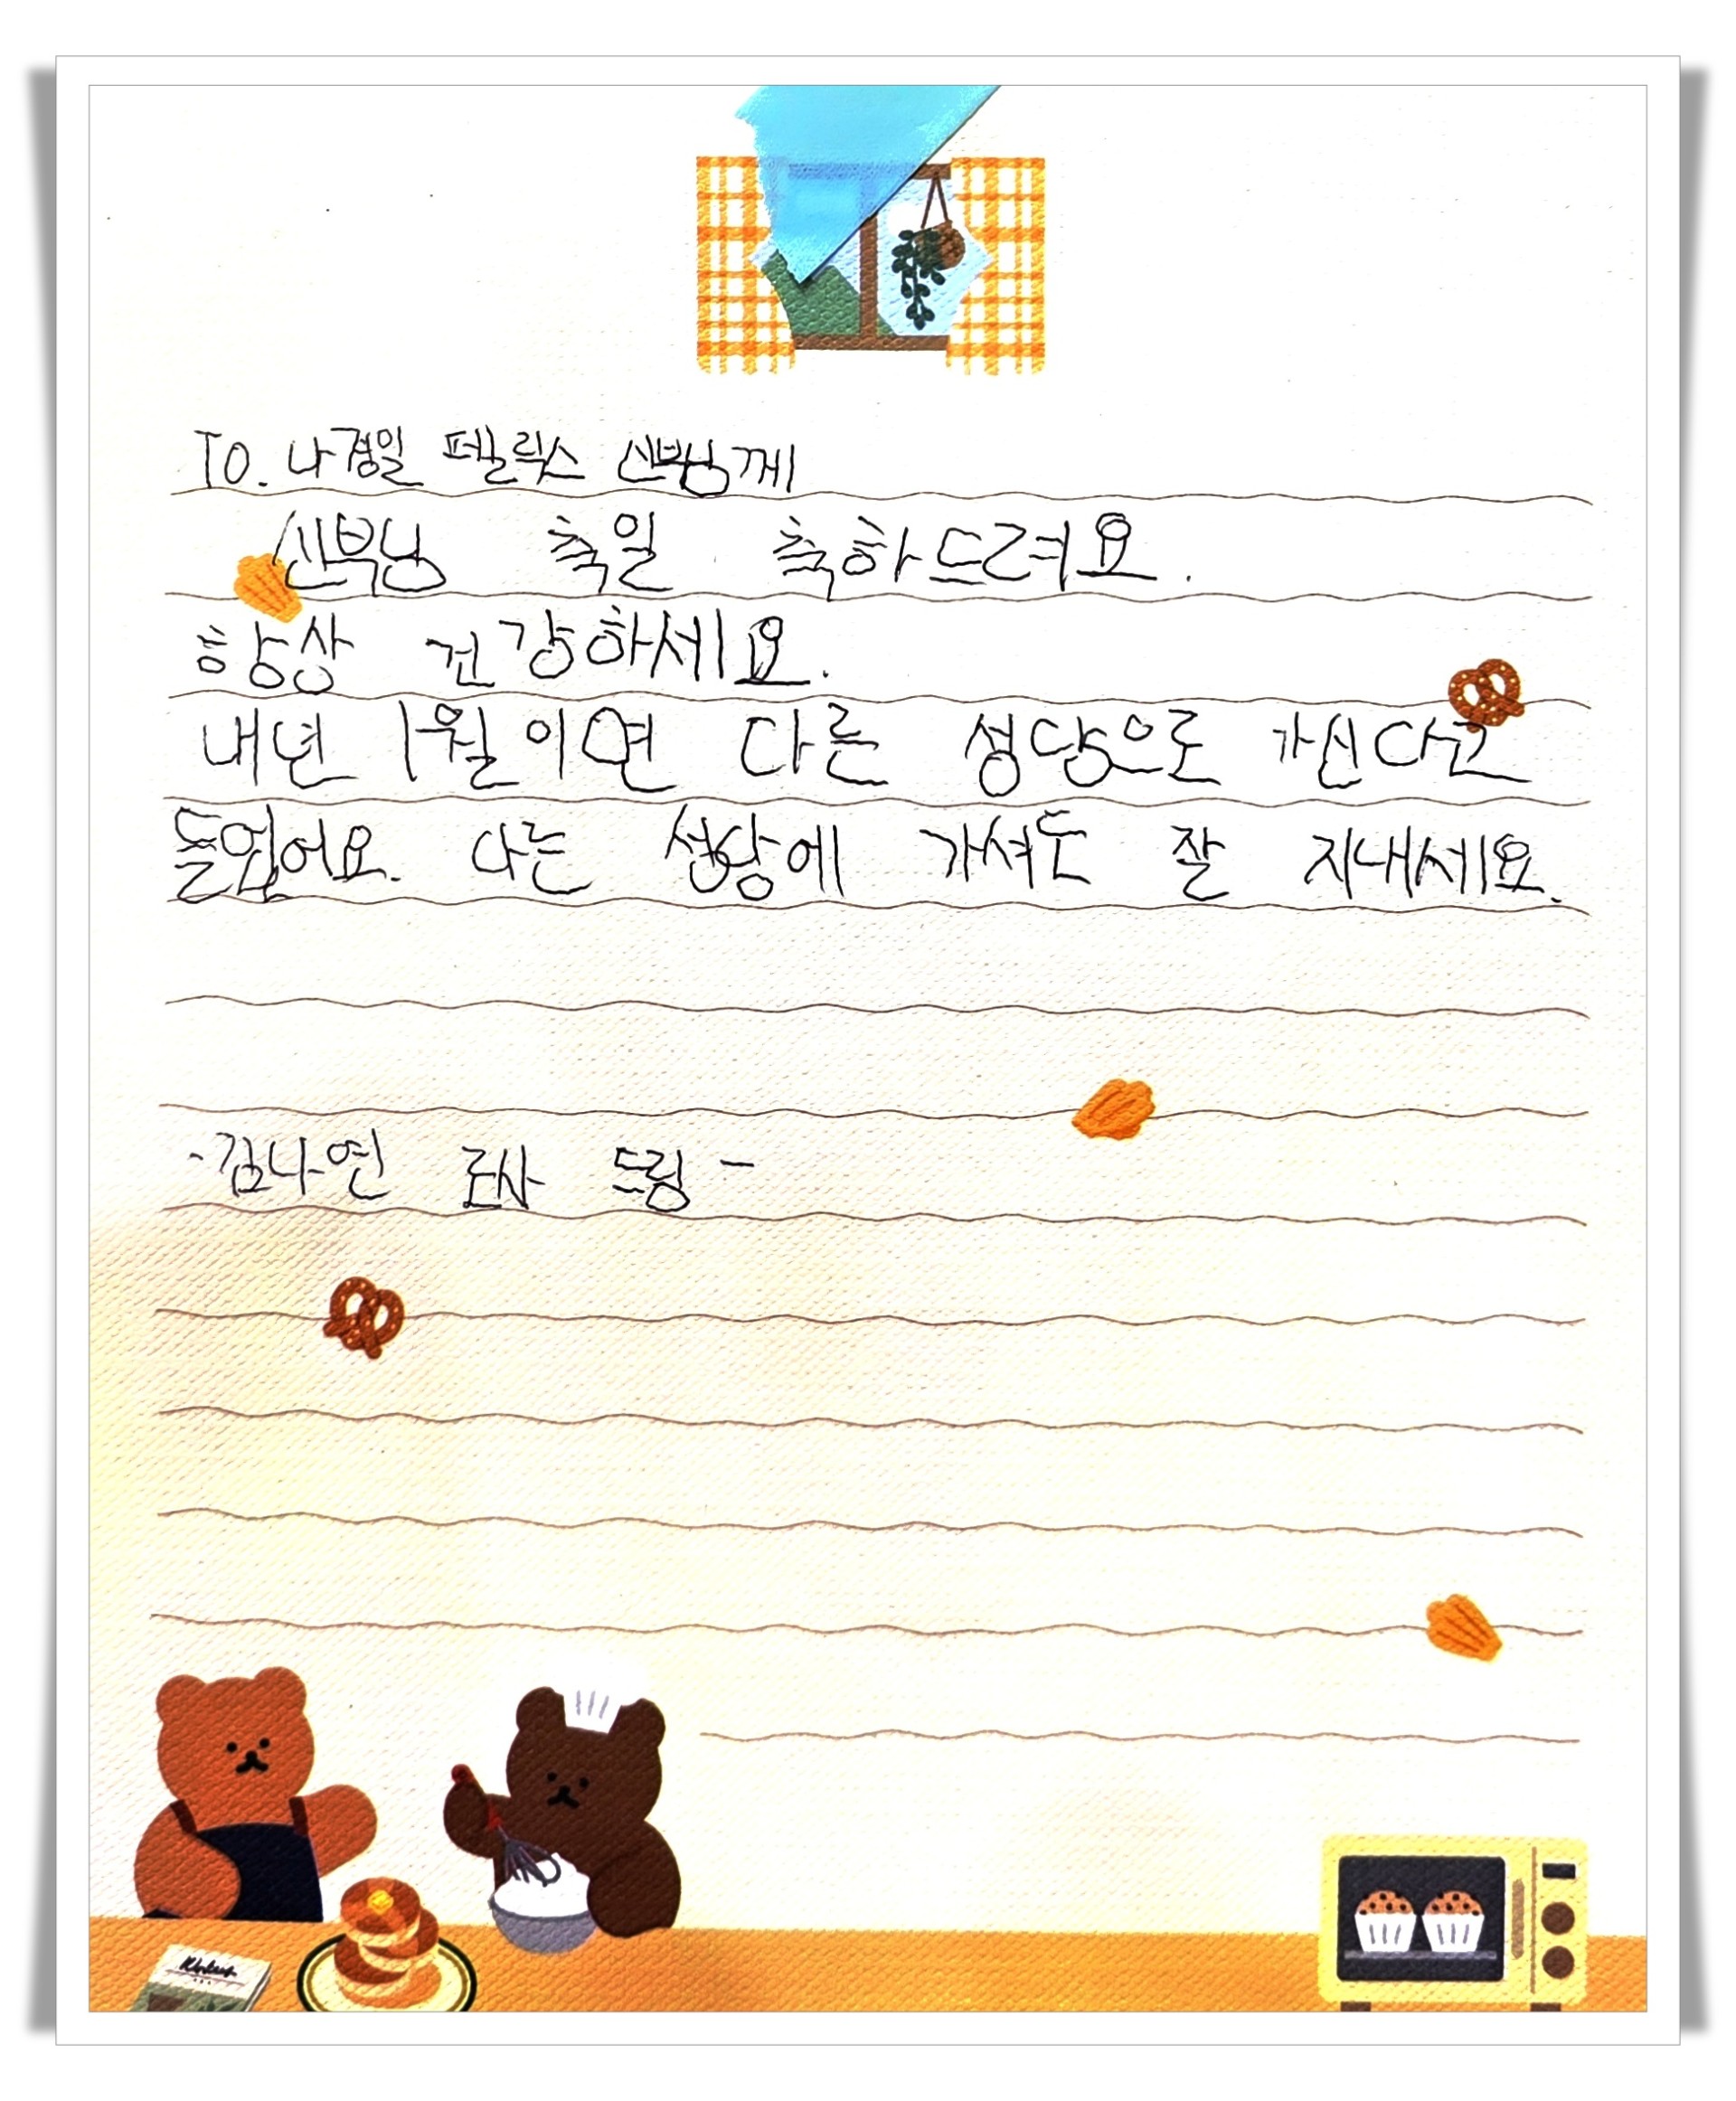 TO. 나경일 펠릭스 신부님께
신부님 축일 축하드려요.
항상 건강하세요.
내년 1월이면 다른 성당으로 가신다고
들었어요. 다른 성당에 가셔도 잘 지내세요.
-김나연 로사 드림-